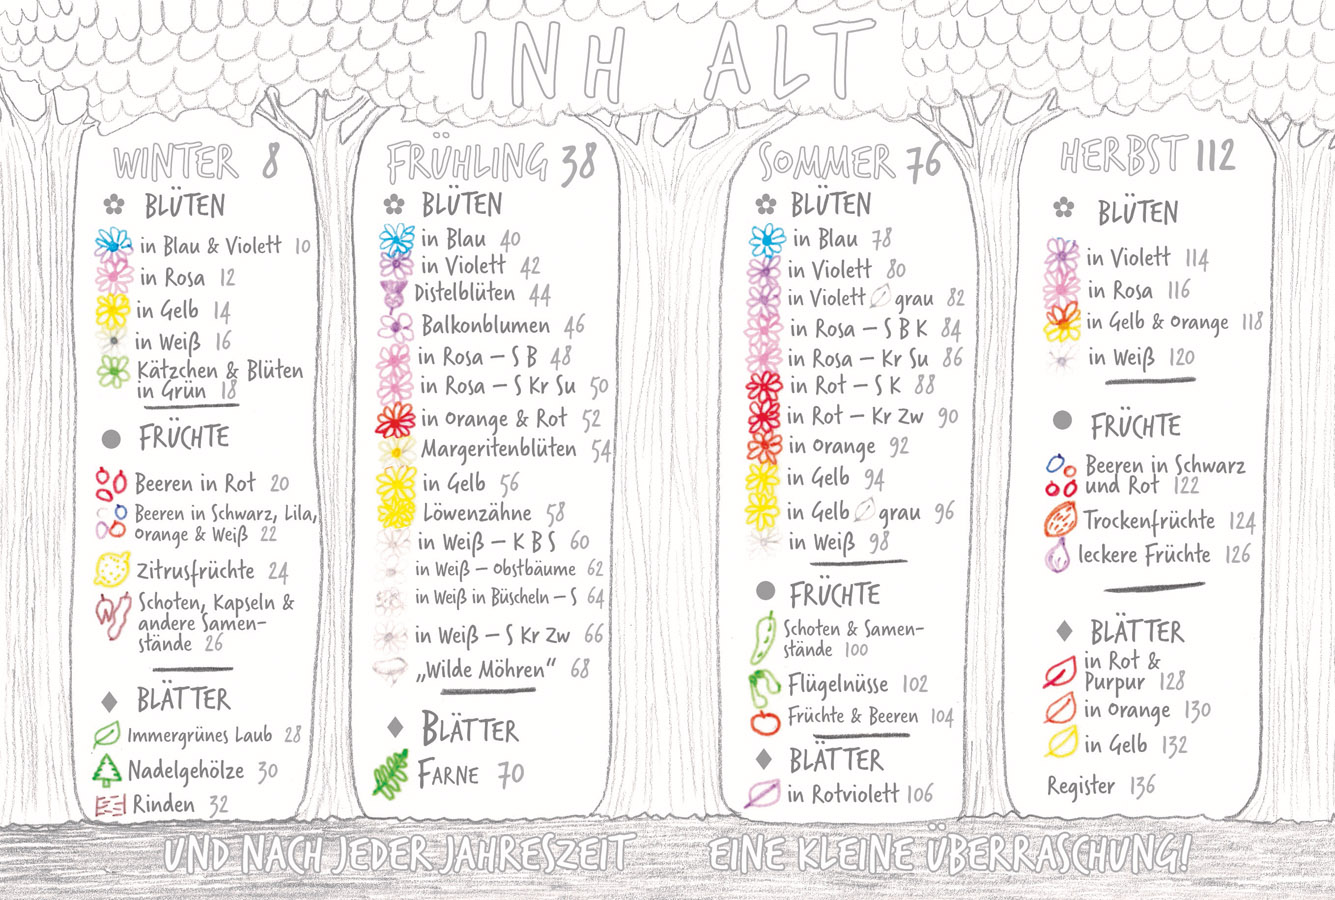 INHALT
WINTER 8
BLÜTEN
in Blau & Violett 10
in Rosa 12
in Gelb 14
in Weiß 16
Kätzchen & Blüten
in Grün 18
FRÜCHTE
Beeren in Rot 20
Beeren in Schwarz, Lila,
Orange & Weiß 22
Zitrusfrüchte 24
Schoten, Kapseln &
andere Samen-
stände 26
BLÄTTER
Immergrünes Laub 28
Nadelgehölze 30
Rinden 32
FRÜHLING 38
BLÜTEN
in Blau 40
in Violett 42
Distelblüten 44
Balkonblumen 46
in Rosa – S B 48
in Rosa – S Kr Su 50
in Orange & Rot 52
Margeritenblüten 54
in Gelb 56
Löwenzähne 58
in Weiß – K B S 60
in Weiß – Obstbäume 62
in Weiß in Büscheln – S 64
in Weiß – S Kr Zw 66
„Wilde Möhren“ 68
BLÄTTER
FARNE 70
SOMMER 76
BLÜTEN
in Blau 78
in Violett 80
in Violett grau 82
in Rosa – S B K 84
in Rosa – Kr Su 86
in Rot – S K 88
in Rot – Kr Zw 90
in Orange 92
in Gelb 94
in Gelb grau 96
in Weiß 98
FRÜCHTE
Schoten & Samen-
stände 100
Flügelnüsse 102
Früchte & Beeren 104
BLÄTTER
in Rotviolett 106
HERBST 112
BLÜTEN
in Violett 114
in Rosa 116
in Gelb & Orange 118
in Weiß 120
FRÜCHTE
Beeren in Schwarz
und Rot 122
Trockenfrüchte 124
leckere Früchte 126
BLÄTTER
in Rot &
Purpur 128
in Orange 130
in Gelb 132
Register 136
UND NACH JEDER JAHRESZEIT EINE KLEINE ÜBERRASCHUNG!